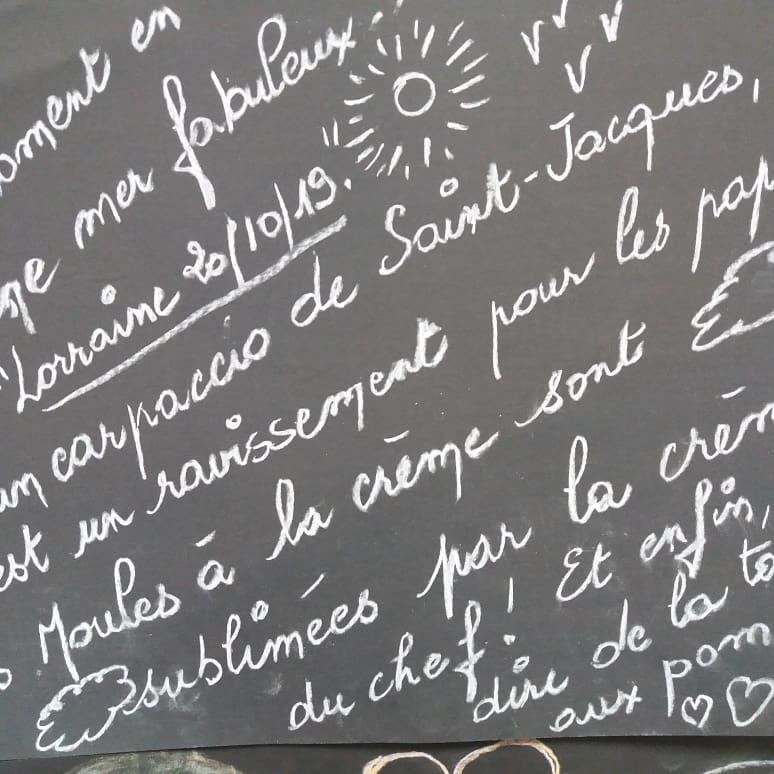 moment en
mer fabuleux!
"Lorraine 20/10/19."
un carpaccio de Saint-Jacques,
est un ravissement pour les pap
Moules à la crème sont
sublimées par la crèm
du chef! Et enfin,
dire de la to
aux pom